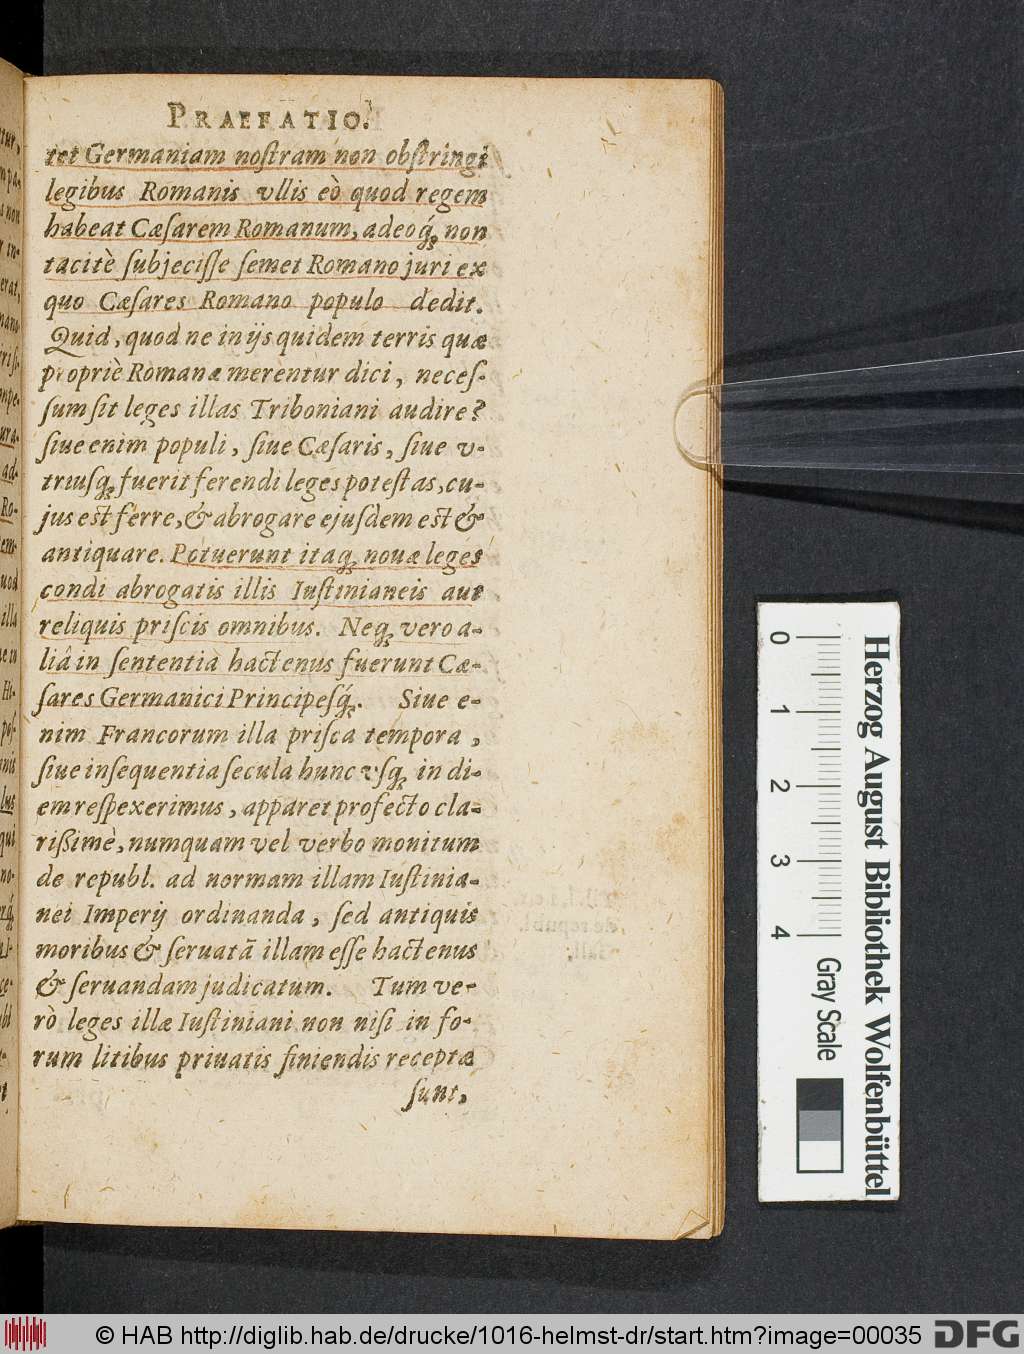 PRAEFATIO.
tet Germaniam noſtram non obſtringi
legibus Romanis vllis eò quod regem
habeat Cæſarem Romanum, adeoq́ꝫ non
tacitè ſubjeciſſe ſemet Romano juri ex
quo Cæſares Romano populo dedit.
Quid, quod ne in ijs quidem terris quæ
propriè Romanæ merentur dici, neceſ-
ſum ſit leges illas Triboniani audire?
ſiue enim populi, ſiue Cæſaris, ſiue v-
triuſqꝫ fuerit ferendi leges poteſtas, cu-
jus est ferre, & abrogare ejuſdem est &
antiquare. Potuerunt itaqꝫ novæ leges
condi abrogatis illis Iuſtinianeis aut
reliquis priſcis omnibus. Neqꝫ vero a-
liâ in ſententia hactenus fuerunt Cæ-
ſares Germanici Principeſq́ꝫ. Siue e-
nim Francorum illa priſca tempora,
ſiue inſequentia ſecula hunc vſqꝫ in di-
em reſpexerimus, apparet profecto cla-
rißimè, numquam vel verbo monitum
de republ. ad normam illam Iuſtinia-
nei Imperij ordinanda, ſed antiquis
moribus & ſeruatā illam eſſe hactenus
& ſeruandam judicatum. Tum ve-
rò leges illæ Iuſtiniani non niſi in fo-
rum litibus priuatis finiendis receptæ
ſunt,
0
1
2
3
4
Gray Scale
Herzog August Bibliothek Wolfenbüttel
© HAB http://diglib.hab.de/drucke/1016-helmst-dr/start.htm?image=00035
DFG